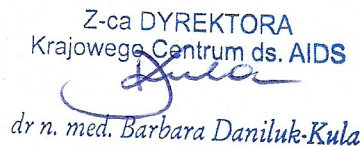 Z-ca DYREKTORA
Krajowego Centrum ds. AIDS
Kula
dr n. med. Barbara Daniluk-Kula